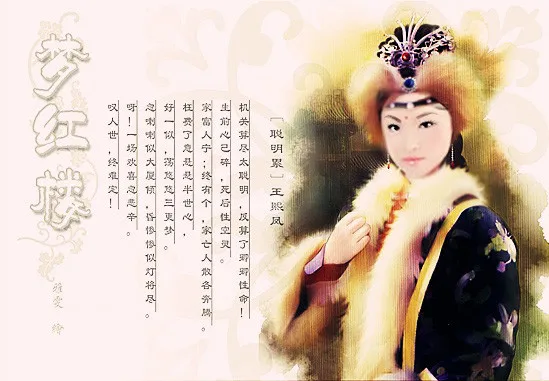 梦红楼
［聪明累］王熙凤
机关算尽太聪明，反算了卿卿性命！
生前心已碎，死后性空灵。
家富人宁；终有个，家亡人散各奔腾。
枉费了意悬悬半世心，
好一似，荡悠悠三更梦。
忽喇喇似大厦倾，昏惨惨似灯将尽。
呀！一场欢喜忽悲辛。
叹人世，终难定！